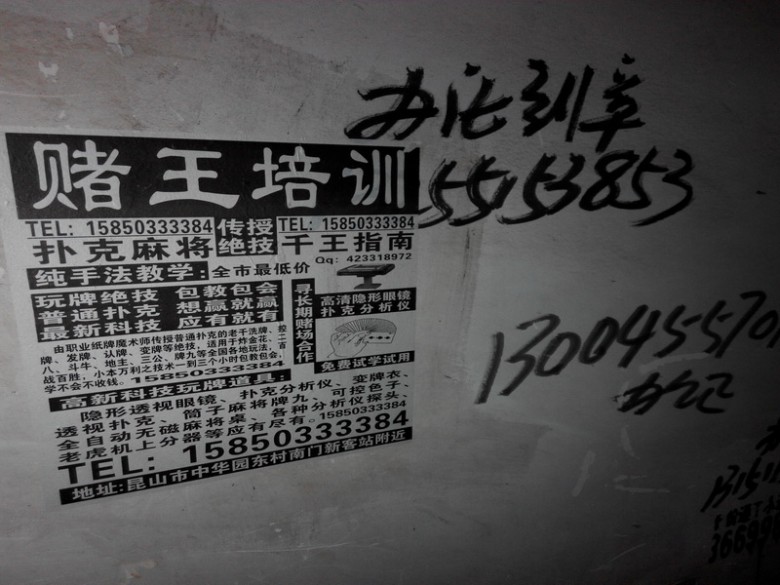 赌王培训
TEL: 15850333384 传授 TEL: 15850333384
扑克麻将 绝技 千王指南
Qq: 423318972
纯手法教学: 全市最低价
玩牌绝技 包教包会
普通扑克 想赢就赢
最新科技 应有就有
寻长期赌场合作
高清隐形眼镜
扑克分析仪
免费试学试用
由职业纸牌魔术师传授普通扑克的老千洗牌、控
牌、发牌、认牌、变牌等绝技,适用于炸金花、二
八、斗牛、地主、三公、牌九等全国各地玩法,百
战百胜,小本万利之技术一到三个小时包教包会,
学不会不收钱。15850333384
高新科技玩牌道具:
隐形透视眼镜、扑克分析仪、变牌衣、
透视扑克、筒子麻将牌九、可控色子、
全自动无磁麻将桌、各种分析仪探头、
老虎机上分器等应有尽有。15850333384
TEL: 15850333384
地址:昆山市中华园东村南门新客站附近
办证刻章
55153853
130045570
办证
13151